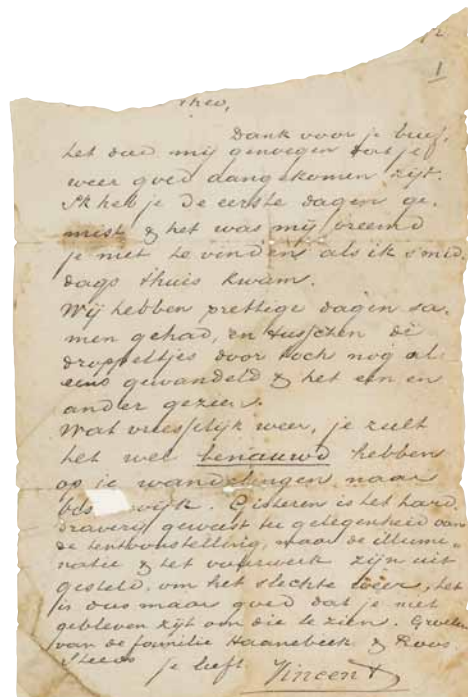 1
Theo,
Dank voor je brief,
het deed mij genoegen dat je
weer goed aangekomen zijt.
Ik heb je de eerste dagen ge-
mist & het was mij vreemd
je niet te vinden als ik s'mid-
dags thuis kwam.
Wij hebben prettige dagen sa-
men gehad, en tusschen de
droppeltjes door toch nog al
eens gewandeld & het een en
ander gezien.
Wat vreesselijk weer, je zult
het wel benauwd hebben
op je wandelingen naar
Gisteren is het hard-
draverij geweest ter gelegenheid van
de tentoonstelling, maar de illumi-
natie & het vuurwerk zijn uit-
gesteld, om het slechte weer, het
is dus maar goed dat je niet
gebleven zijt om die te zien. Groeten
van de familie Haanebeek & Roos.
Steeds
je liefh. Vincent